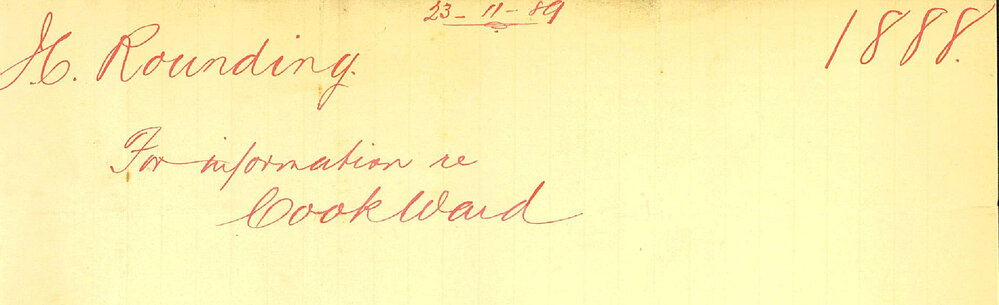 23-11-89
H. Rounding. 1888.
For information re
Cook Ward